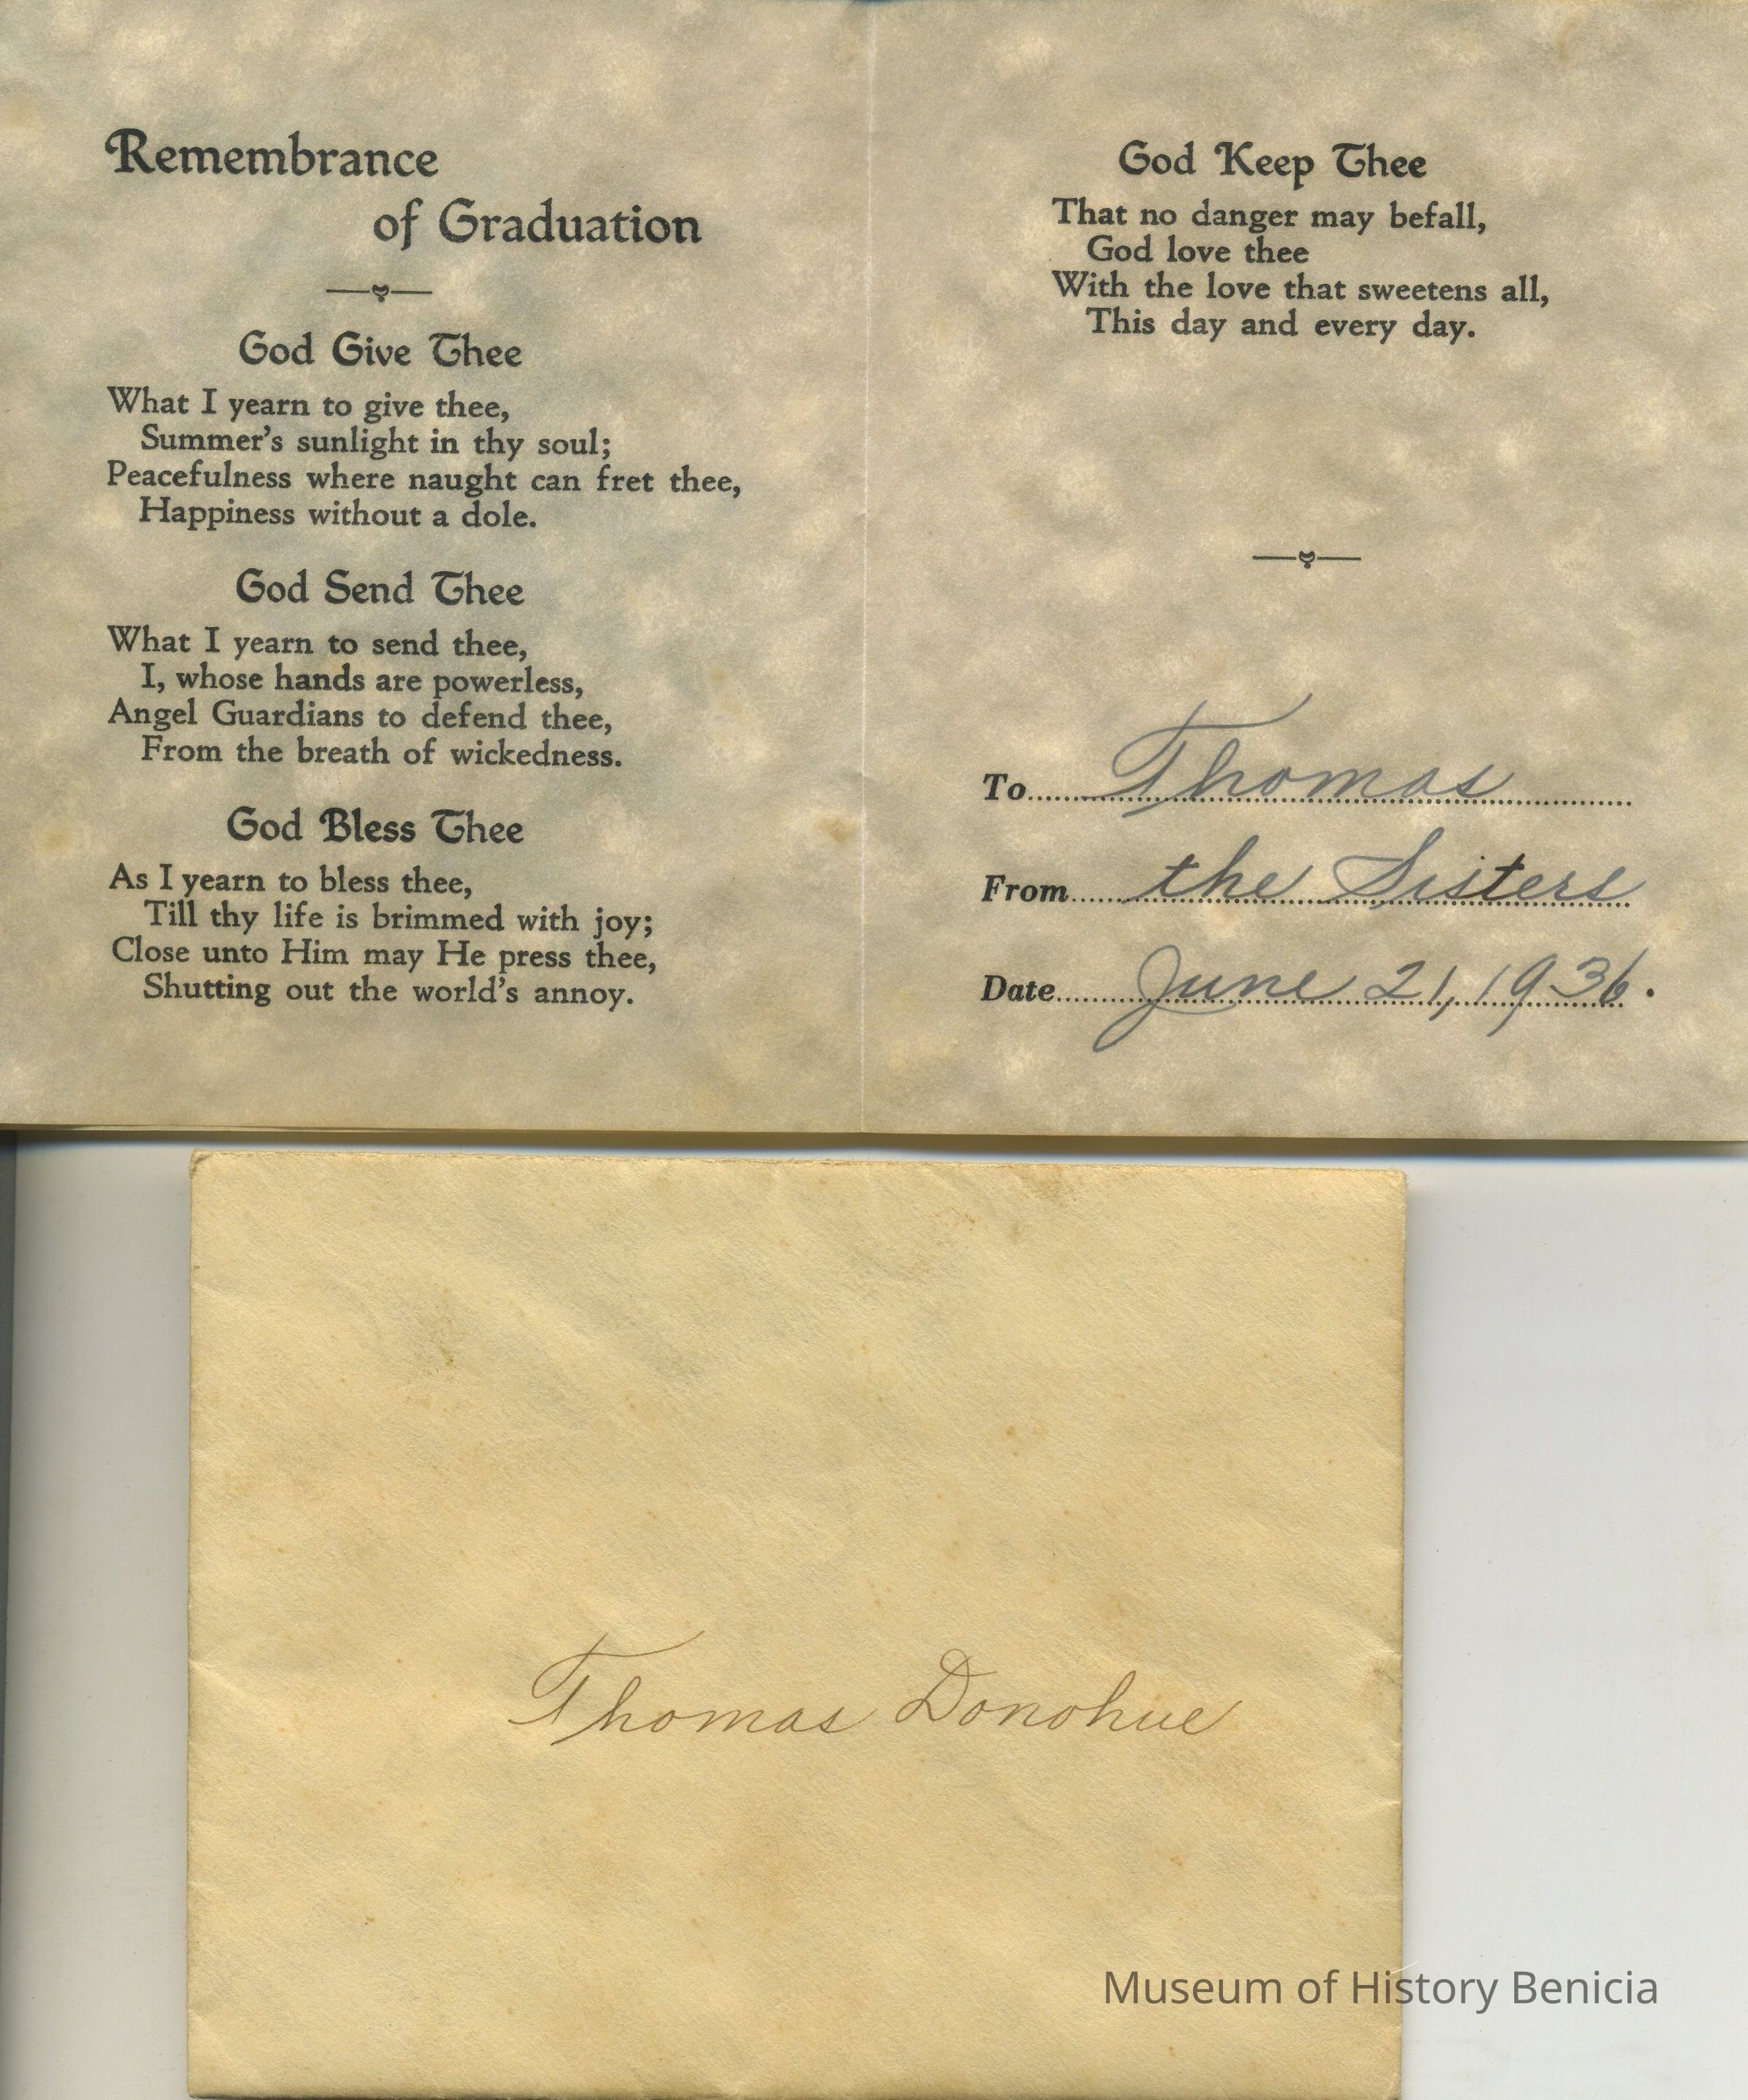 Remembrance
of Graduation
God Give Thee
What I yearn to give thee,
Summer's sunlight in thy soul;
Peacefulness where naught can fret thee,
Happiness without a dole.
God Send Thee
What I yearn to send thee,
I, whose hands are powerless,
Angel Guardians to defend thee,
From the breath of wickedness.
God Bless Thee
As I yearn to bless thee,
Till thy life is brimmed with joy;
Close unto Him may He press thee,
Shutting out the world's annoy.
God Keep Thee
That no danger may befall,
God love thee
With the love that sweetens all,
This day and every day.
To Thomas
From the Sisters
Date June 21, 1936.
Thomas Donohue
Museum of History Benicia